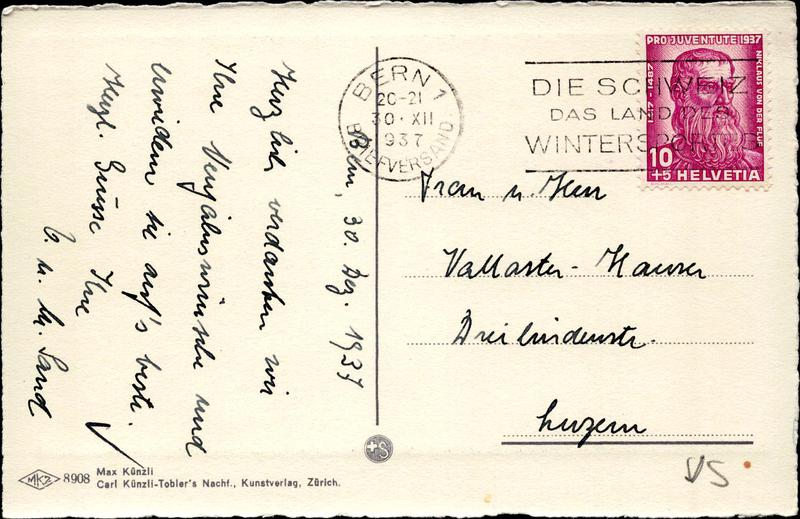 Bern, 30. Dez. 1937
Herzlich verdanken wir
Ihre Neujahrswünsche und
erwidern sie auf's beste.
Herzl. Grüsse Ihre
E. u. M. Sand
BERN 1
20-21
30·XII
1937
BRIEFVERSAND
DIE SCHWEIZ
DAS LAND DES
WINTERSPORTES
PRO JUVENTUTE 1937
NIKLAUS VON DER FLÜE
1417-1487
10
+5 HELVETIA
Frau u Herr
Vallaster-Hauser
Dreilindenstr.
Luzern
VS
S
MKZ 8908
Max Künzli
Carl Künzli-Tobler's Nachf., Kunstverlag, Zürich.